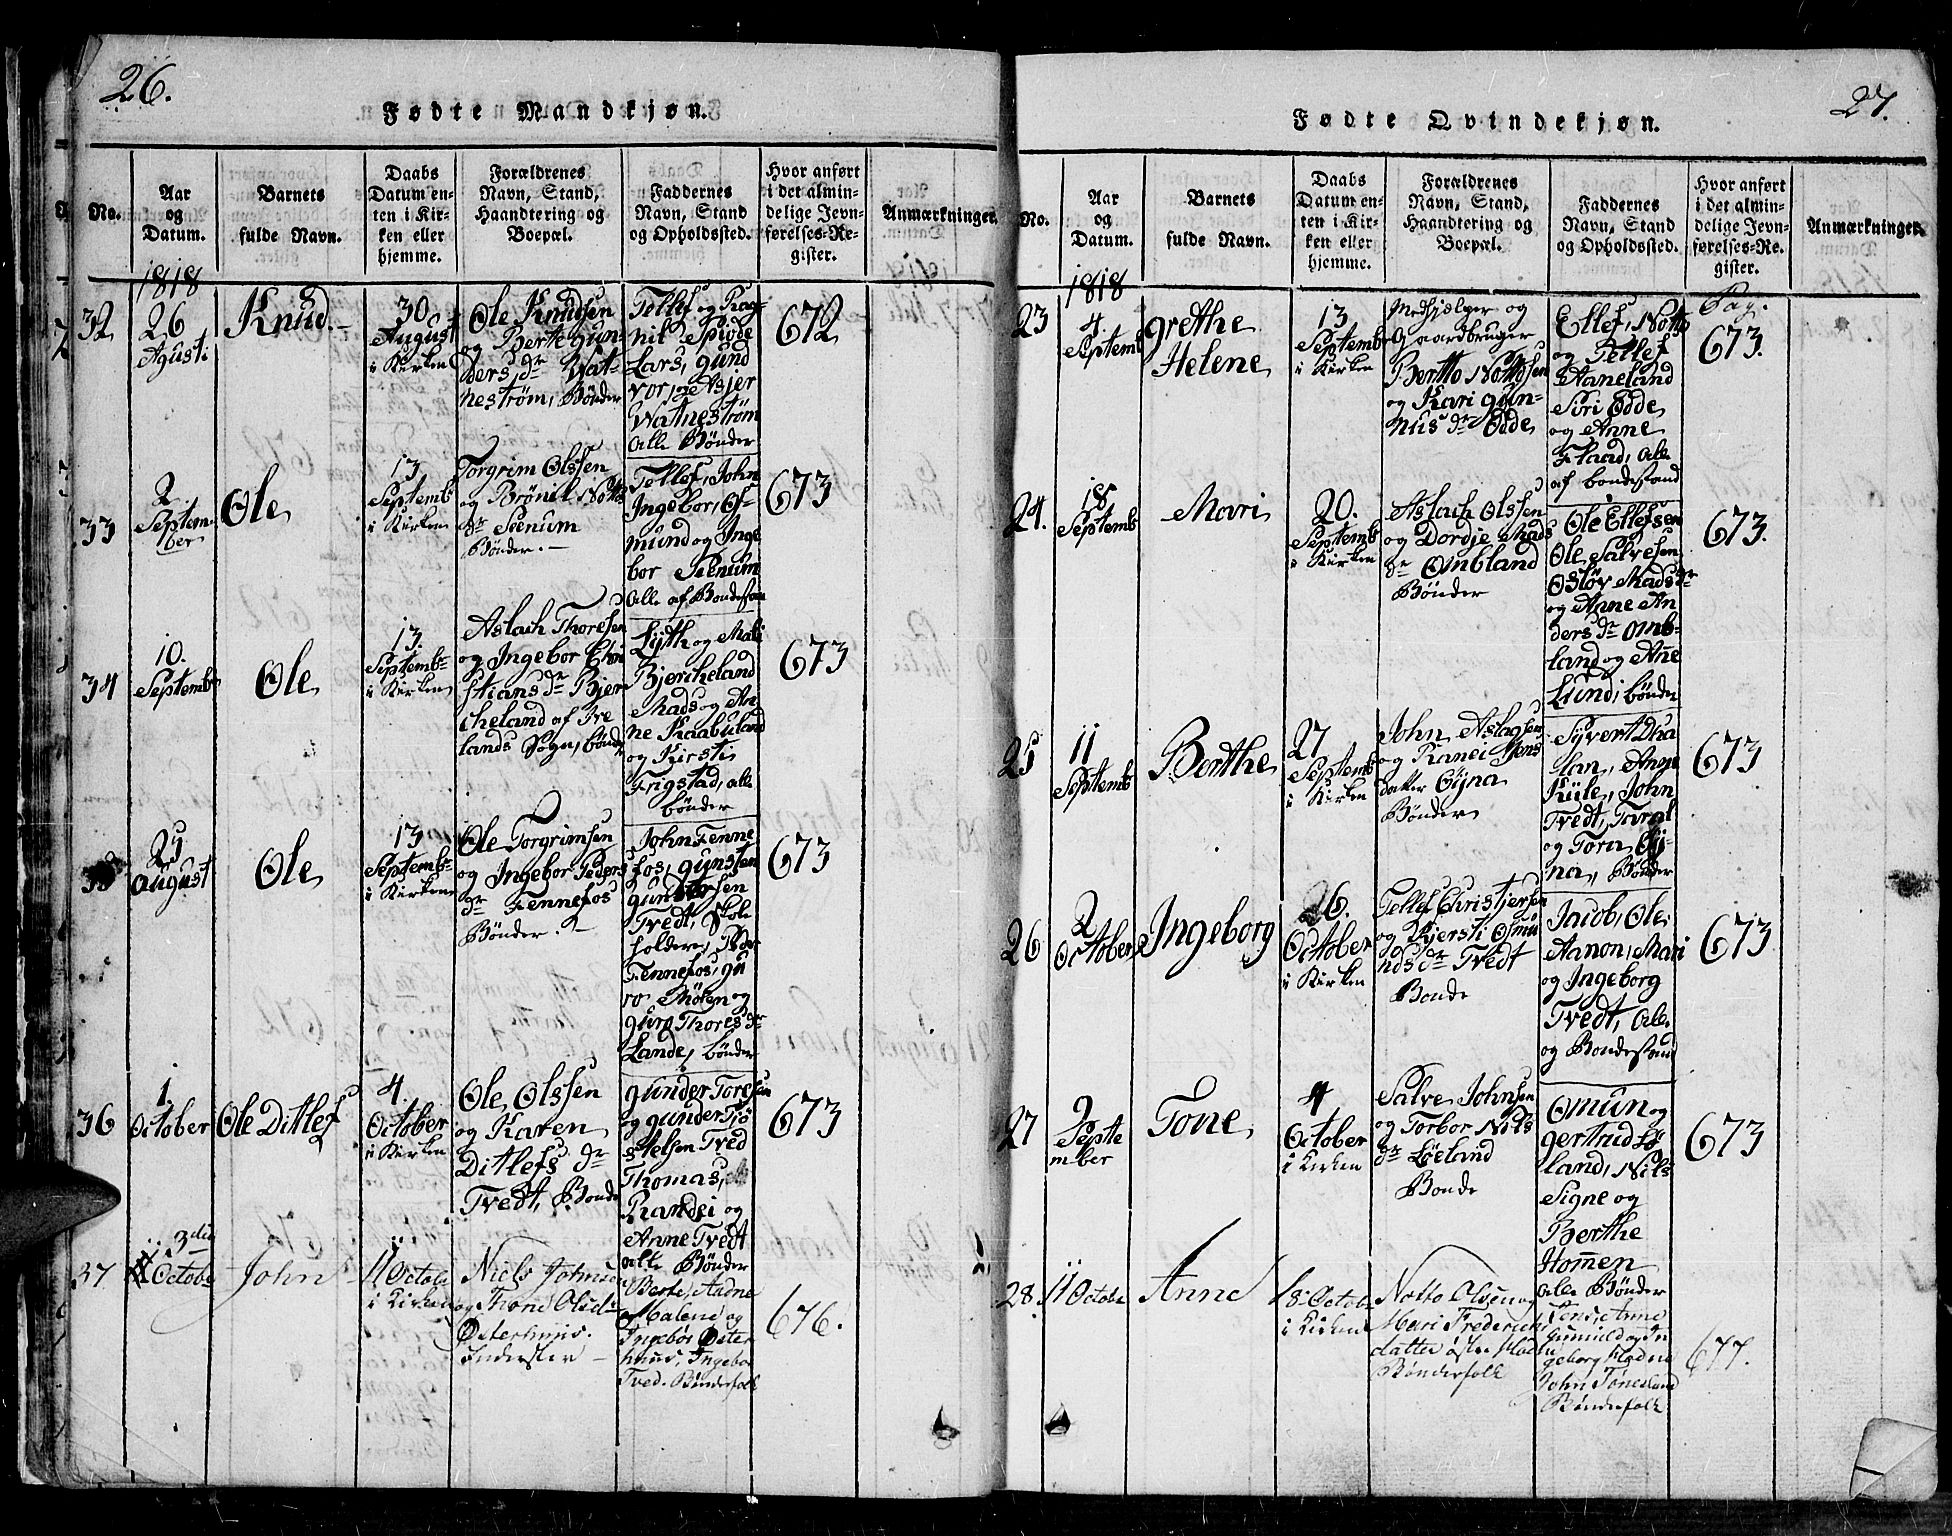 26.
Fødte Mandkjøn.
No.
Aar
og
Datum.
Barnets
fulde Navn.
Daabs
Datum en-
ten i Kir-
ken eller
hjemme.
Forældrenes
Navn, Stand,
Haandtering og
Boepæl.
Faddernes
Navn, Stand
og Opholdssted.
Hvor anført
i det almin-
delige Jevn-
førelses-Re-
gister.
Anmærkninger.
1818
32
26
Agusti
Knud.
30.
August
i Kirken
Ole Knudsen
og Berte Gun-
ders dr Wat-
nestrøm, Bønder
Tellef og Rag-
nil
Lars, Gund
vor, og Asjer
Watnestrøm
alle Bønder
672
33
2
Septem-
ber
Ole
13
Septemb
i Kirken
Torgrim Olssen
og Brønil Notto
dr Senum
Bønder.
Tellef, John
Ingebor, Os-
mund og Inge
bor Senum
Alle af Bondestan
673
34
10.
Septemb
Ole
13
Septembr
i Kirken
Aslach Thoresen
og Ingebor Chri
stians dr Bjer
cheland af Ive
lands Sogn, bønder
Lyth og Mali
Bjercheland
Mads og An-
ne Kaabuland
og Kirsti
Frigstad, alle
bønder
673
25
August
Ole
13
Septembr
i Kirken
Ole Torgrimsen
og Ingebor Peders
dr Fennefos
Bønder.
John Fenne
fos, Gunsten
Gundersen
Tvedt, Skole
holder,
Fennefos, Gu
ro Moen og
Guro Thores dr
Lande, bønder
673
36
1.
October
Ole Ditlef
4
October
i Kirken
Ole Olssen
og Karen
Ditlefs dr
Tvedt, Bonde
Gunder Toresen
og Gunder Tos
stelsen Tved
Thomas,
Randei og
Anne Tvedt
alle Bønder
673
37
3die
Octobr
John
11 Octobr
i Kirken
Niels Johnsen
og Thone Olsdr
Østerhuus.
Inderster
Berte, Aadne
Malene og
Ingebor Øster
huus, Ingebor
Tved. Bønderfolk
676.
27.
Fødte Qvindekjøn.
No.
Aar
og
Datum.
Barnets
fulde Navn.
Daabs
Datum en-
ten i Kir-
ken eller
hjemme.
Forældrenes
Navn, Stand,
Haandtering og
Boepæl.
Faddernes
Navn, Stand
og Opholdssted.
Hvor anført
i det almin-
delige Jevn-
førelses-Re-
gister.
Anmærkninger.
1818
23
4.
Septemb
Grethe
Helene
13
Septemb
i Kirken
Medhjælper og
Gaardbruger
Bertto Nottosen
og Kari Gun-
nus dr Odde
Ellef, Notto
og Tellef
Aaneland
Siri Odde
og Anne
Flaad, alle
af bondestand
Pag.
673.
24.
18
Septemb
Mari
20.
Septemb
i Kirken
Aslach Olssen
og Dordje Mads
dr Ombland
Bønder
Ole Ellefsen
Ole Salvesen
Osløv Mads dr
og Anne An
ders dr Omb-
land og Ane
Lund, bønder
673.
25
11
Septemb
Berthe
27
Septemb
i Kirken
John Aslagsen
og Ranei Jens
datter Øyna
Bønder
Syvert Dha
lan, Ange
Küle, John
Tvedt, Targl
og Torn Øy-
na, Bønder
673
26
2
October
Ingeborg
26.
October
i Kirken
Tellef Christjersen
og Kjersti Osmu
nds dr Tvedt
Bonde
Jacob, Ole
Aanon, Mari
og Ingeborg
Tvedt, Alle
og Bondestand
673
27
9
Septe
mber
Tone
4
October
i Kirken
Salve Johnsen
og Torbor Nils
dr Løeland
Bonde
Omun og
Gertrud Lø
land, Nils
Signe og
Berthe
Hommen
alle Bønder
673
28.
11 Octobr
Anne
18 Octobr
i Kirken
Notto Olsen og
Mari Frederichs
datter øster Flad
Bønderfolk
Anne
Gunuld og In
geborg Fladne
John Tønesland
Bønderfolk
677.